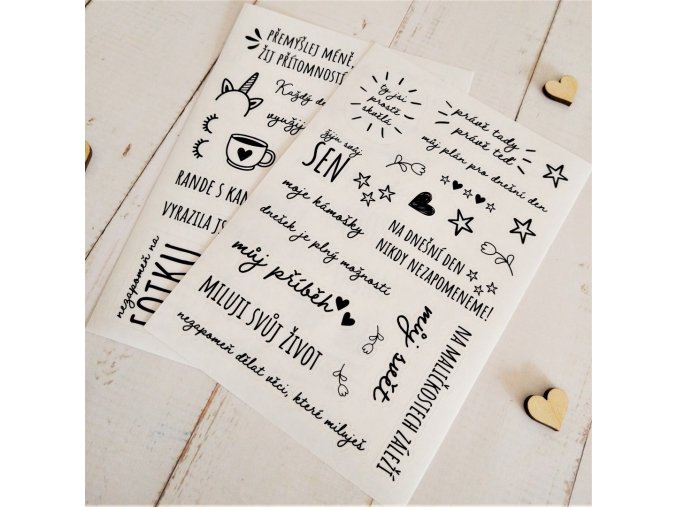 PŘEMÝŠLEJ MÉNĚ,
ŽIJ PŘÍTOMNOSTÍ
Každý
využij
RANDE S
VYRAZILA
nezapomeň na
FOTKU
ty jsi
prostě
skvělá
právě tady
právě teď
můj plán pro dnešní den
žiju svůj
SEN
moje kámošky
dnešek je plný možností
NA DNEŠNÍ DEN
NIKDY NEZAPOMENEME!
můj příběh
MILUJI SVŮJ ŽIVOT
nezapomeň dělat věci, které miluješ
můj svět
NA MALIČKOSTECH ZÁLEŽÍ